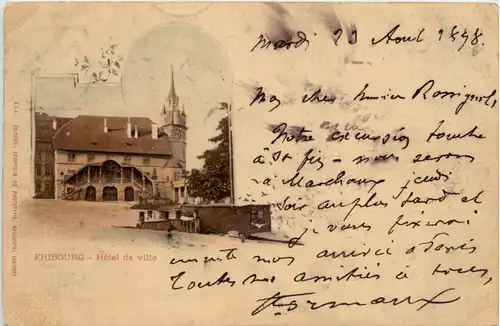 FRIBOURG - Hôtel de ville
Mardi 23 Aout 1898
Mon cher Monsieur Rossignol,
Notre excursion touche
à sa fin - nous serons
à Marchaux jeudi
soir au plus tard et
je vous fixerai
ensuite mon arrivée à Paris
Toutes nos amitiés à tous,